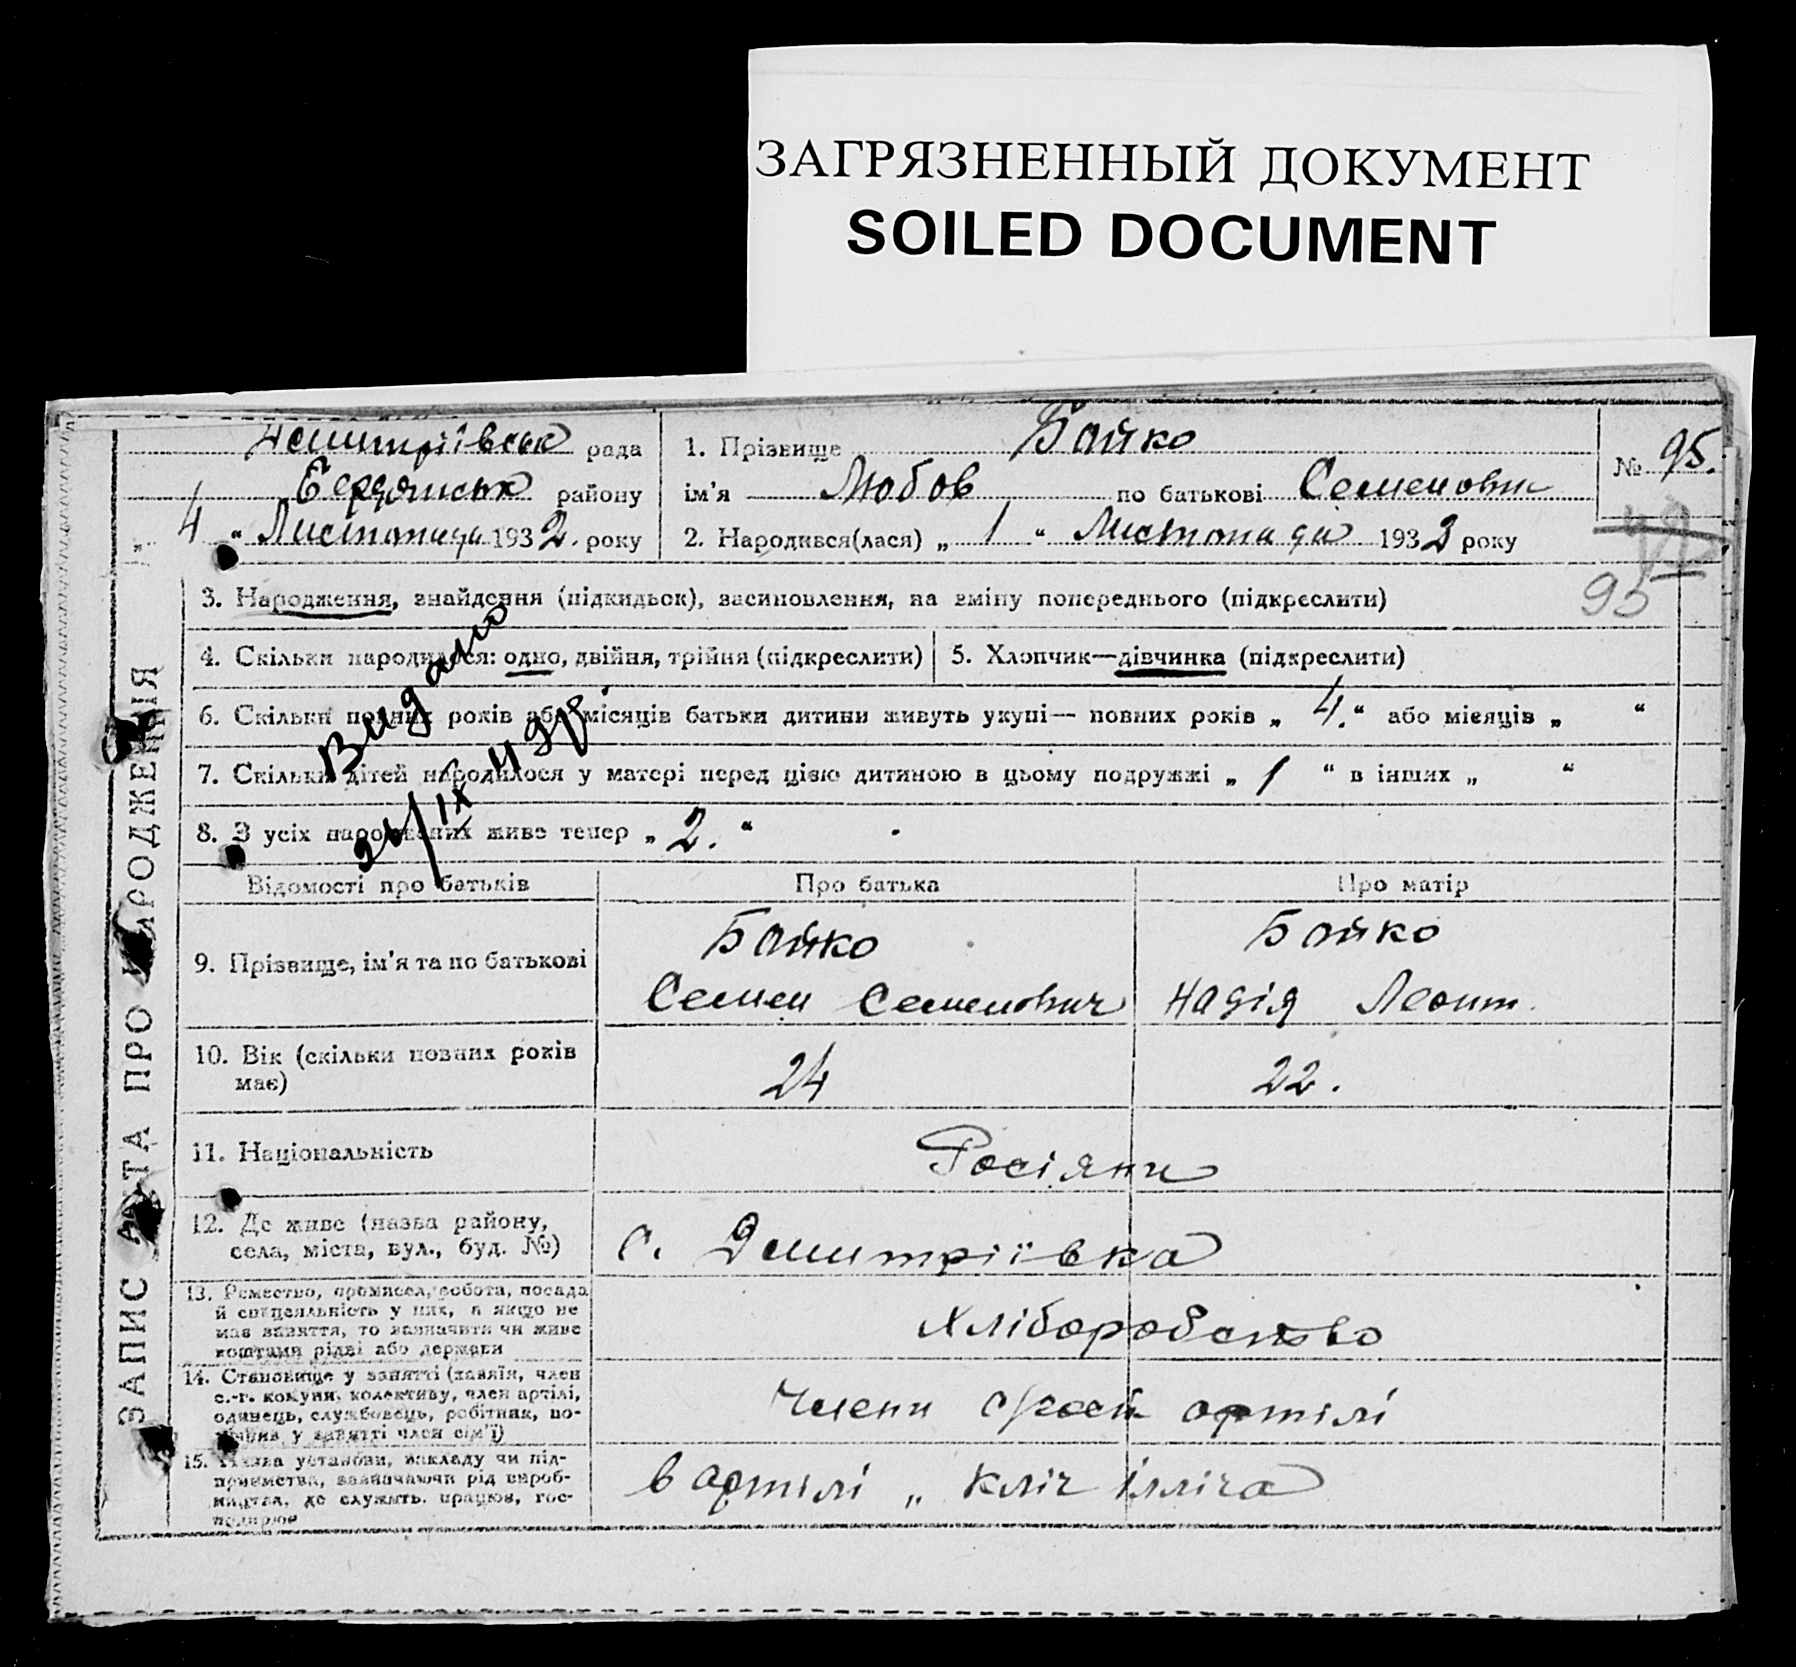 ЗАГРЯЗНЕННЫЙ ДОКУМЕНТ
SOILED DOCUMENT
Дмитріївськ рада
Бердянськ району
„ 4 “ Листопада 1932. року
1. Прізвище Бойко
ім'я Любов по батькові Семеновн
2. Народився(лася) „ 1 “ Листопада 1932 року
№ 95.
95
3. Народження, знайдення (підкидьок), засиновлення, на зміну попереднього (підкреслити)
4. Скільки народилося: одно, двійня, трійня (підкреслити)
5. Хлопчик—дівчинка (підкреслити)
6. Скільки повних років або місяців батьки дитини живуть укупі— повних років „ 4. “ або місяців „ “
7. Скільки дітей народилося у матері перед цією дитиною в цьому подружжі „ 1 “ в інших „ “
8. З усіх народжених живе тепер „ 2. “
Видано
ІХ
Відомості про батьків
Про батька
Про матір
9. Прізвище, ім'я та по батькові
Бойко
Семен Семенович
Бойко
Надія Леонт.
10. Вік (скільки повних років
має)
24
22.
11. Національність
Росіяни
12. Де живе (назва району,
села, міста, вул., буд. №)
с. Дмитріївка
13. Ремество, промисел, робота, посада
й спеціяльність у них, а якщо не
має заняття, то зазначити чи живе
коштами рідні або держави
Хліборобство
14. Становище у занятті (хазяїн, член
с.-г. комуни, колективу, член артілі,
одинець, службовець, робітник, по-
у занятті член сім'ї)
члени артілі
15. Назва установи, закладу чи під-
приємства, зазначаючи рід вироб-
ництва, де служить, працює, гос-
в артілі „ Кліч Ілліча
ЗАПИС АКТА ПРО НАРОДЖЕННЯ